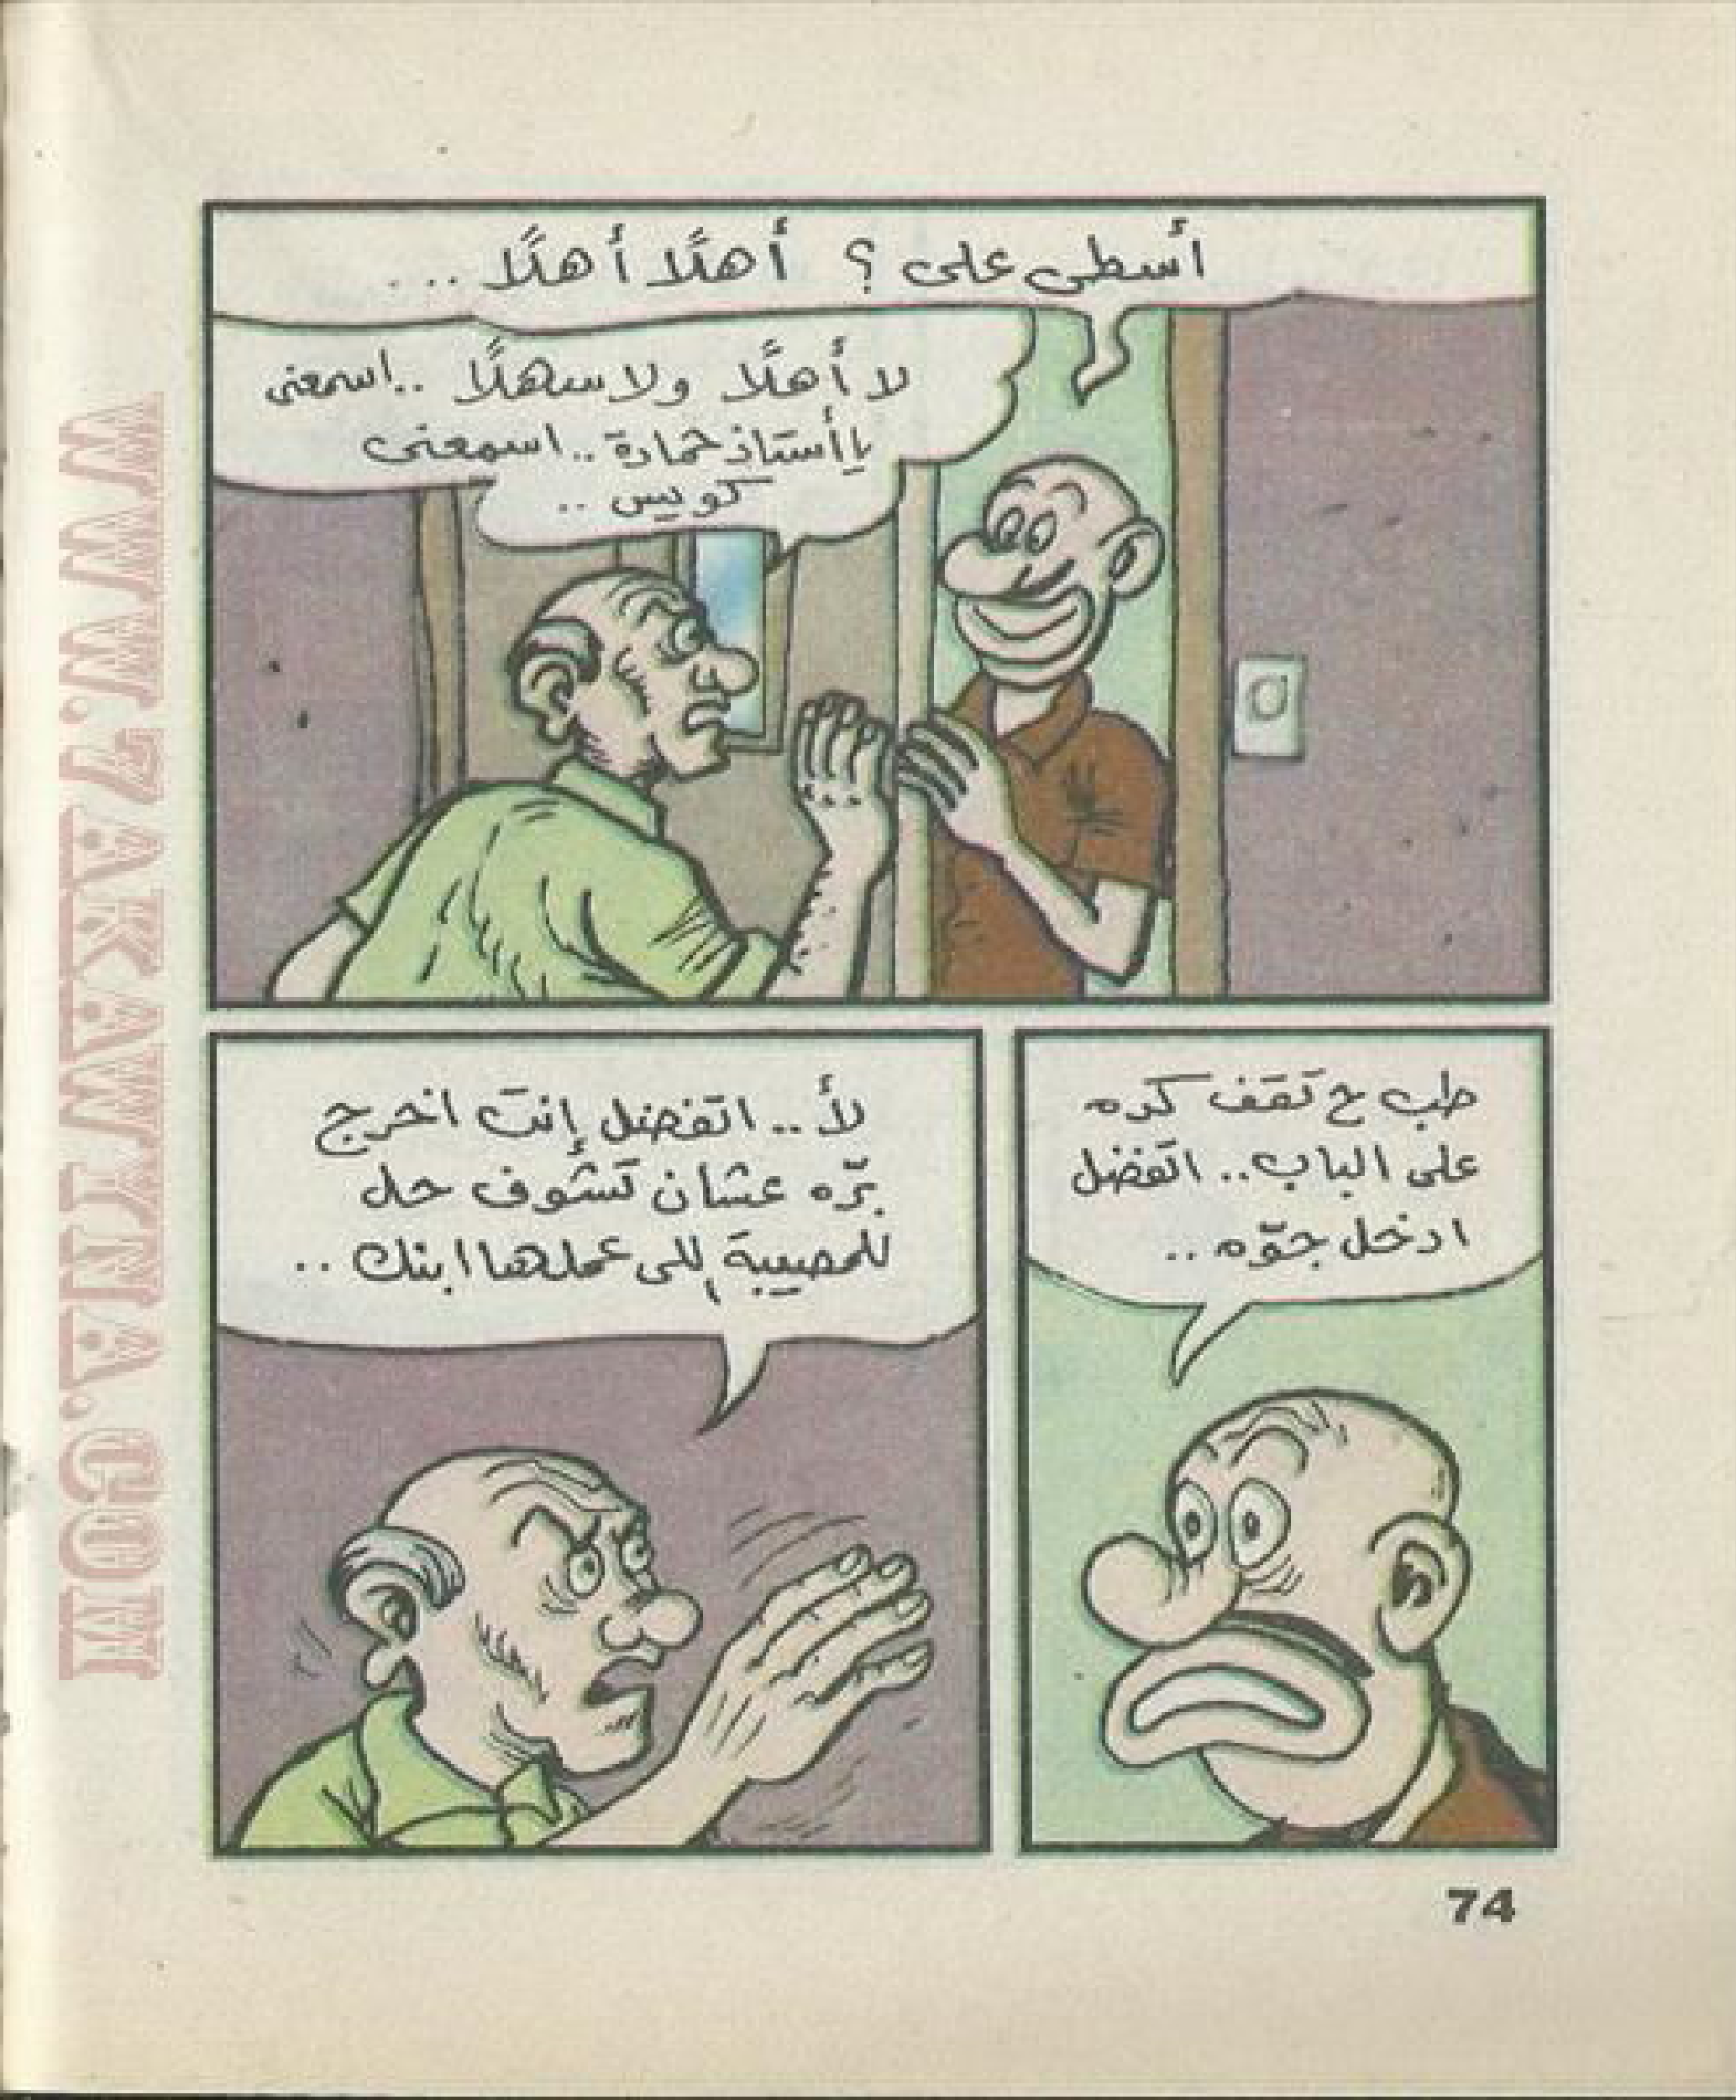 أسطى على ؟ أهلًا أهلًا ...
لا أهلًا ولا سهلًا .. اسمعنى
يا أستاذ حمادة .. اسمعنى
كويس ..
طب ح تقف كده
على الباب .. اتفضل
ادخل جوّه ..
لأ .. اتفضل إنت اخرج
برّه عشان تشوف حل
للمصيبة إللى عملها ابنك ..
74
WWW.7AKAWTNA.COM